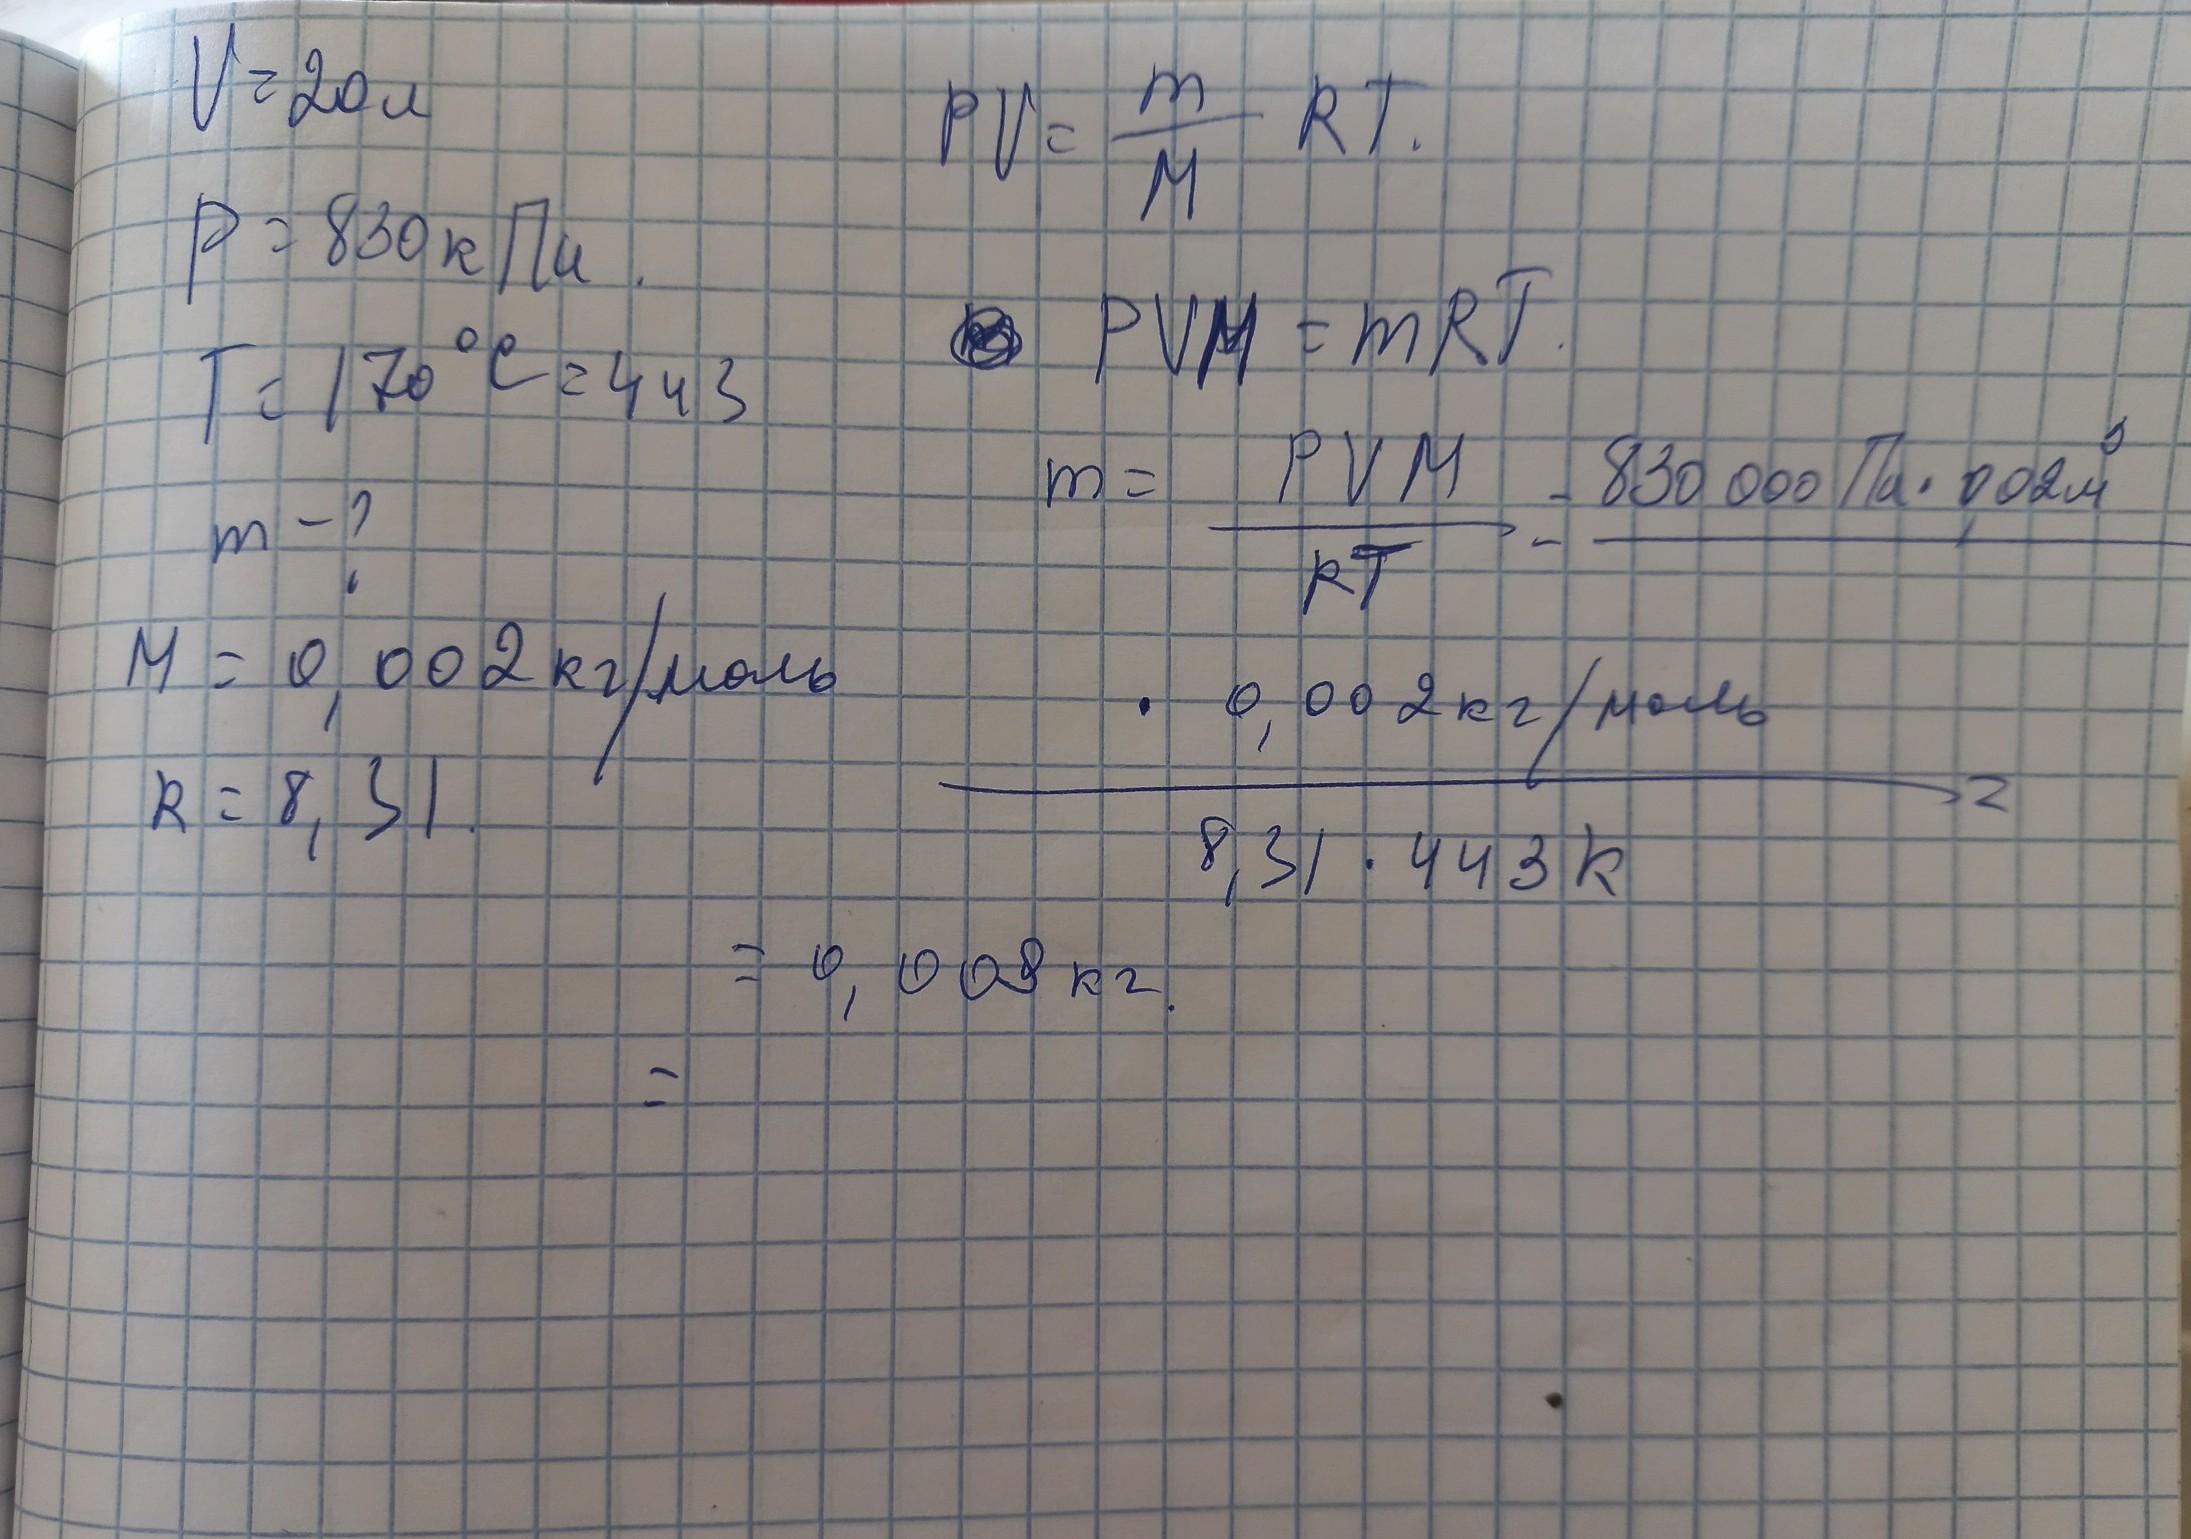 V = 20л
P = 830кПа.
T = 170°C = 443
m - ?
M = 0,002кг/моль
R = 8,31.
PV = m/M RT.
PVM = mRT.
m = PVM/RT = 830 000 Па · 0,02м³
· 0,002кг/моль =
8,31 · 443К
= 0,008кг.
=